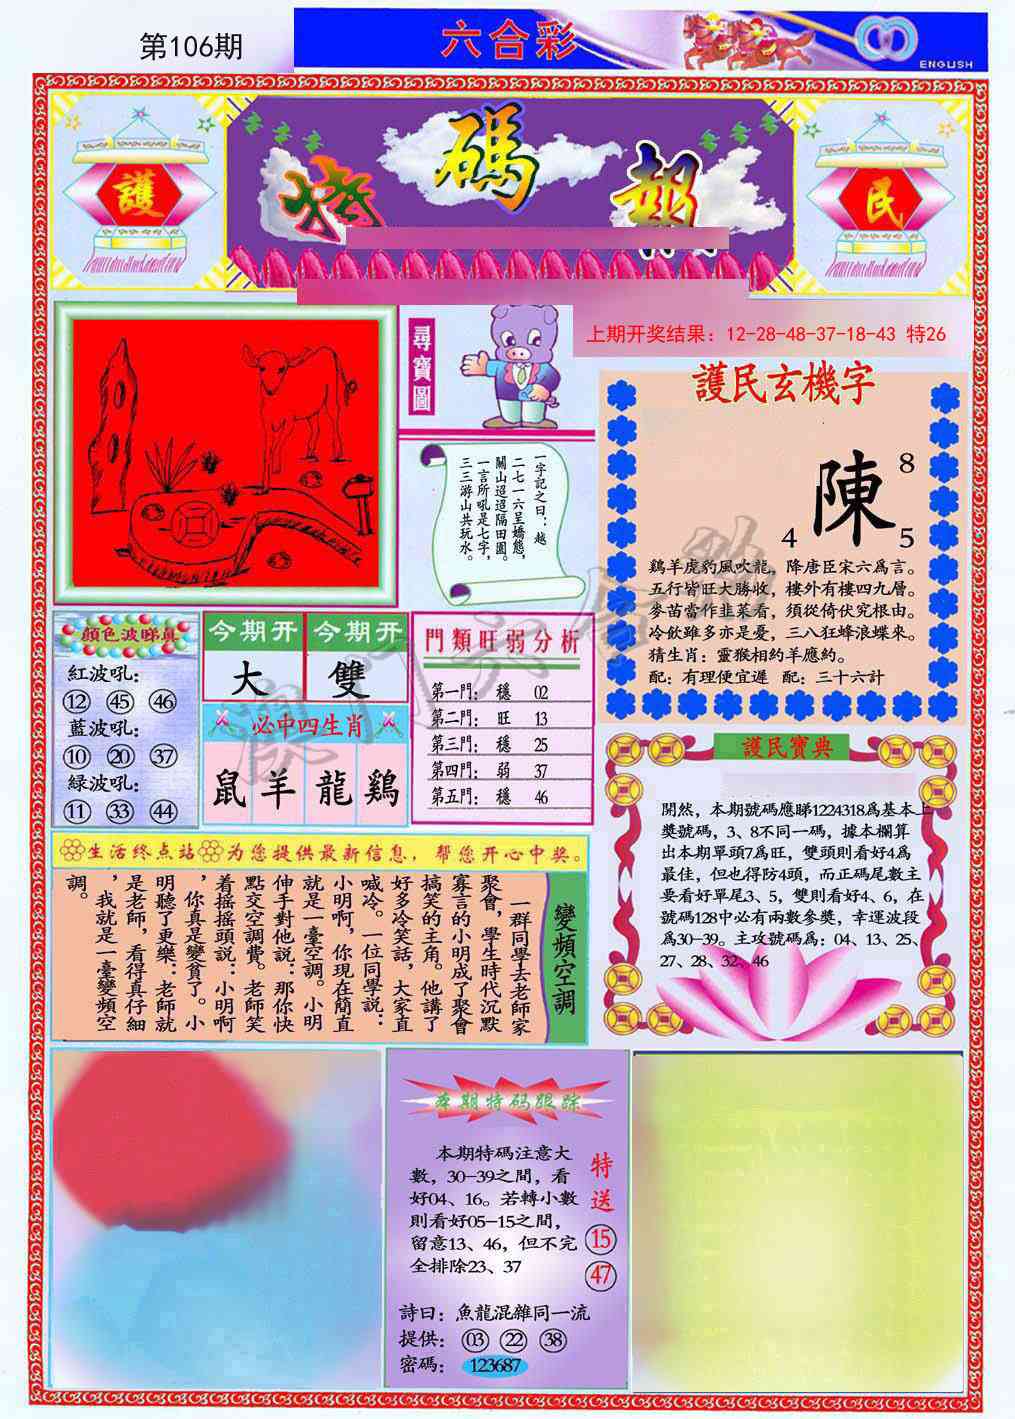 第106期
六合彩
ENGLISH
護
特碼報
民
尋寶圖
上期开奖结果：12-28-48-37-18-43 特26
一字記之曰：越
二七一六呈嬌態，
關山迢迢隔田園。
一言所吼是七字，
三三游山共玩水。
護民玄機字
陳
8
4
5
鷄羊虎豹風吹龍，降唐臣宋六爲言。
五行皆旺大勝收，樓外有樓四九層。
麥苗當作韭菜看，須從倚伏究根由。
冷飲雖多亦是憂，三八狂蜂浪蝶來。
猜生肖：靈猴相約羊應約。
配：有理便宜遲 配：三十六計
顏色波睇真
紅波吼：
12 45 46
藍波吼：
10 20 37
緑波吼：
11 33 44
今期开 今期开
大 雙
必中四生肖
鼠 羊 龍 鷄
門類旺弱分析
第一門： 穩 02
第二門： 旺 13
第三門： 穩 25
第四門： 弱 37
第五門： 穩 46
護民寶典
開然，本期號碼應睇1224318爲基本上
獎號碼，3、8不同一碼，據本欄算
出本期單頭7爲旺，雙頭則看好4爲
最佳，但也得防4頭，而正碼尾數主
要看好單尾3、5，雙則看好4、6，在
號碼128中必有兩數參獎，幸運波段
爲30—39。主攻號碼爲：04、13、25、
27、28、32、46
生活终点站 为您提供最新信息，帮您开心中奖。
變頻空調
一群同學去老師家
聚會，學生時代沉默
寡言的小明成了聚會
搞笑的主角。他講了
好多冷笑話，大家直
喊冷。一位同學説：
小明啊，你現在簡直
就是一臺空調。小明
伸手對他説：那你快
點交空調費。老師笑
着摇摇頭説：小明啊
，你真是變貧了。小
明聽了更樂：老師就
是老師，看得真仔細
，我就是一臺變頻空
調。
本期特码跟踪
本期特碼注意大
數，30—39之間，看
好04、16。若轉小數
則看好05—15之間，
留意13、46，但不完
全排除23、37
特送
15
47
詩曰：魚龍混雜同一流
提供： 03 22 38
密碼： 123687